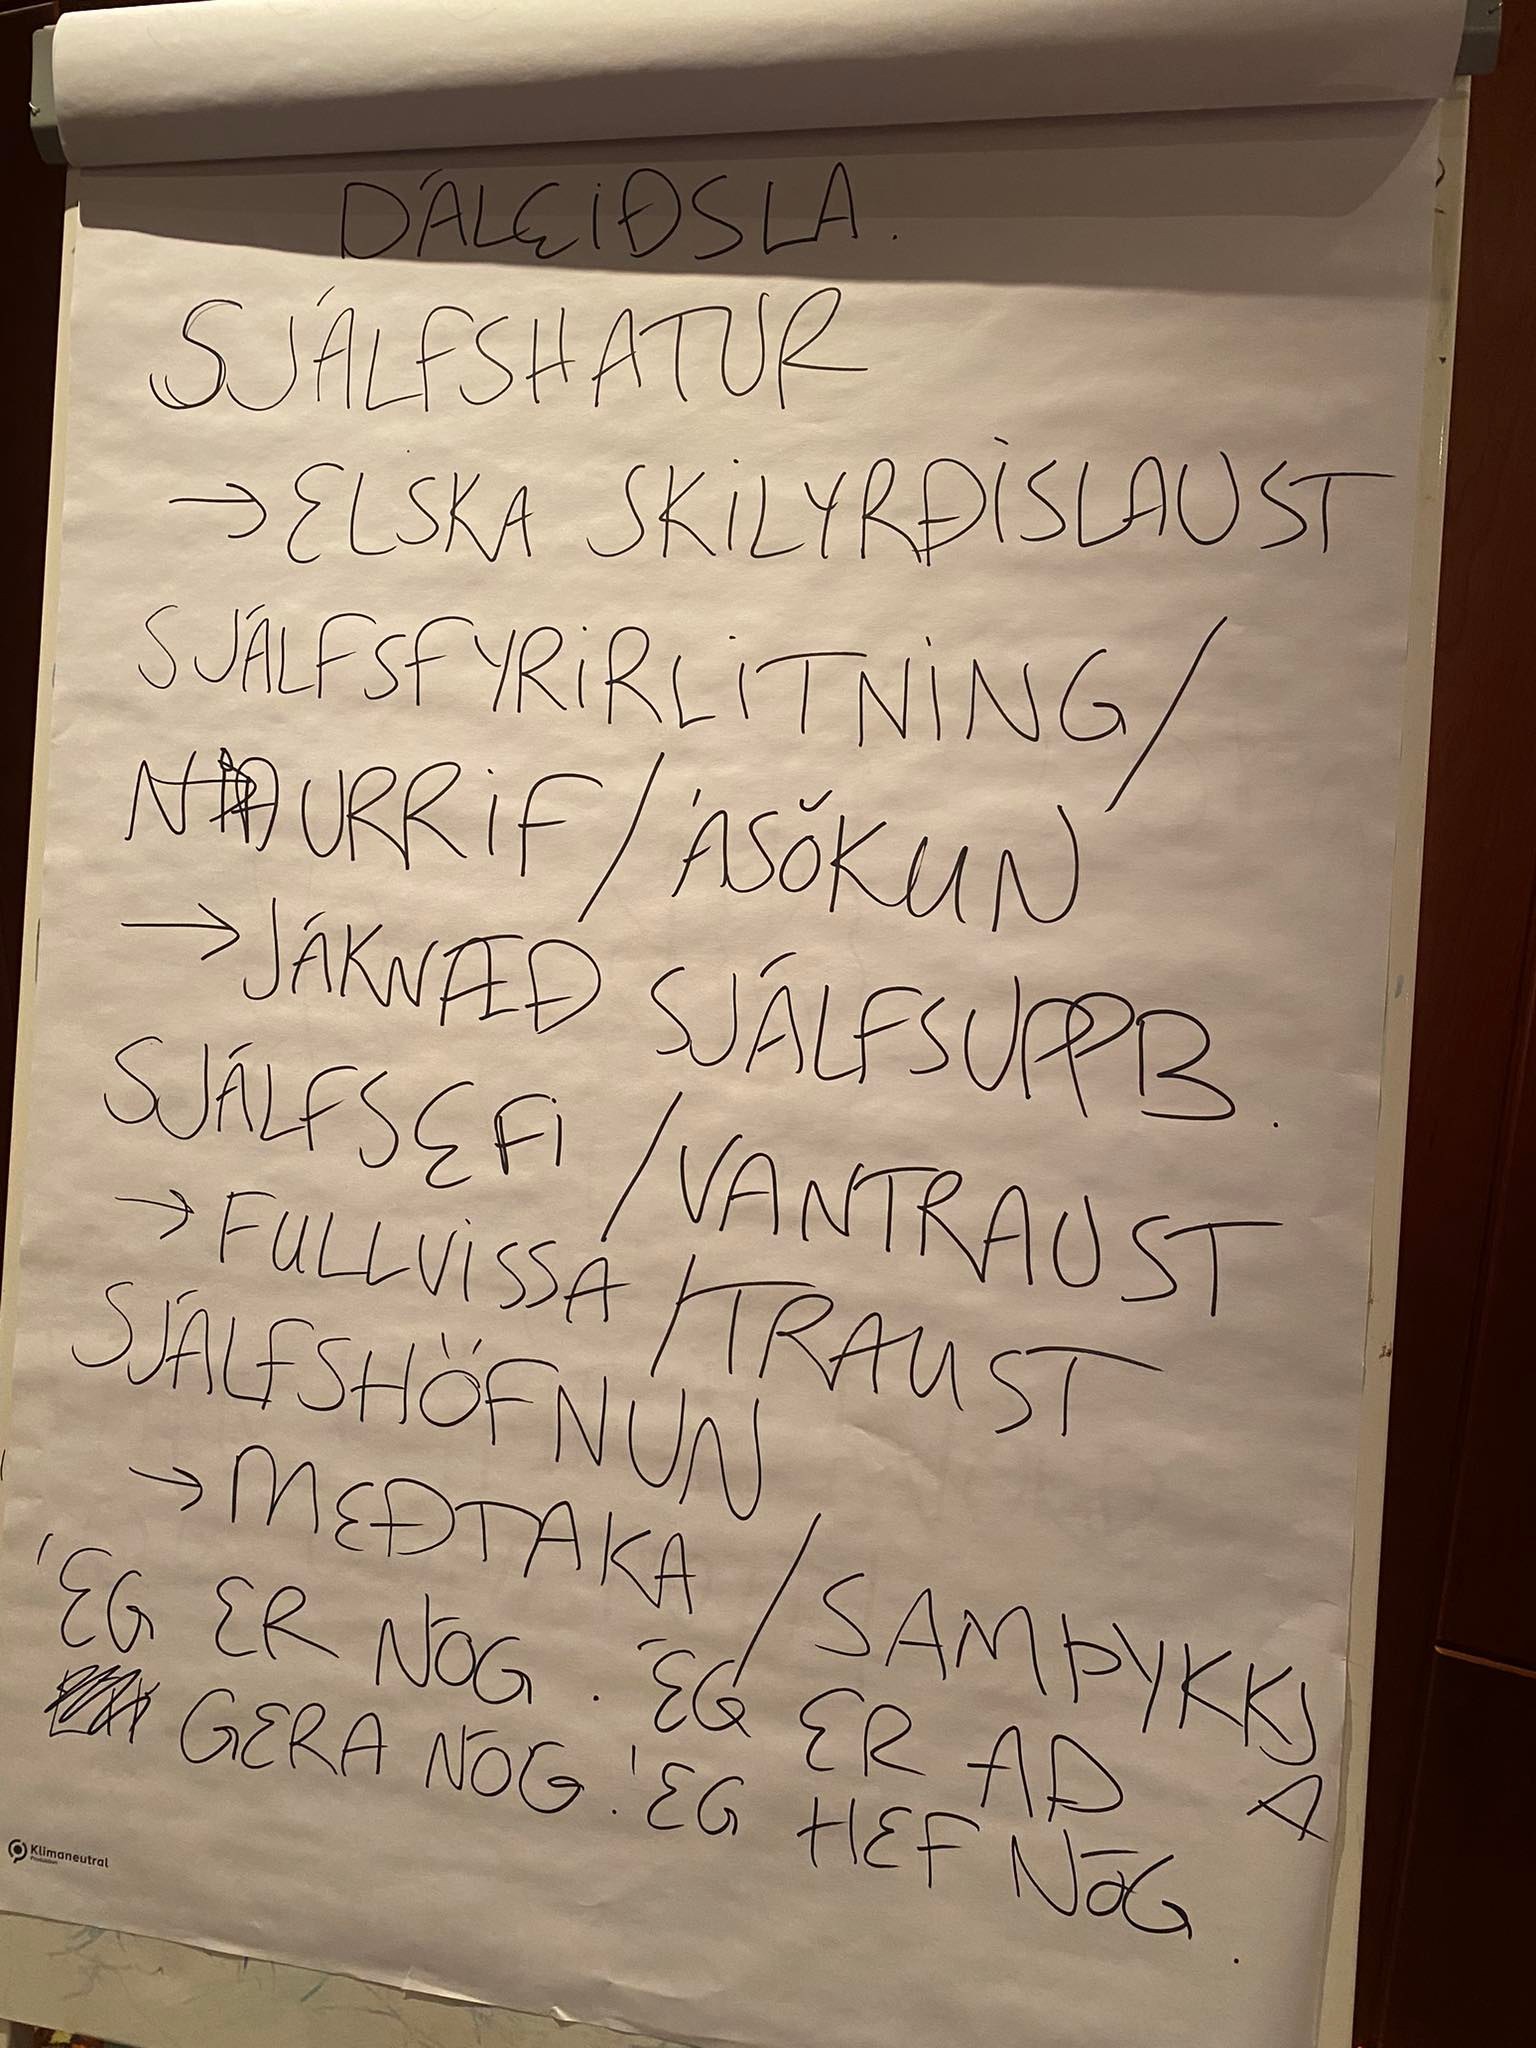 DÁLEIÐSLA.
SJÁLFSHATUR
→ ELSKA SKILYRÐISLAUST
SJÁLFSFYRIRLITNING/
NIÐURRIF/ÁSÖKUN
→ JÁKVÆÐ SJÁLFSUPPB.
SJÁLFSEFI/VANTRAUST
→ FULLVISSA/TRAUST
SJÁLFSHÖFNUN
→ MEÐTAKA/SAMÞYKKJA
ÉG ER NÓG. ÉG ER AÐ
GERA NÓG. ÉG HEF NÓG.
Klimaneutral